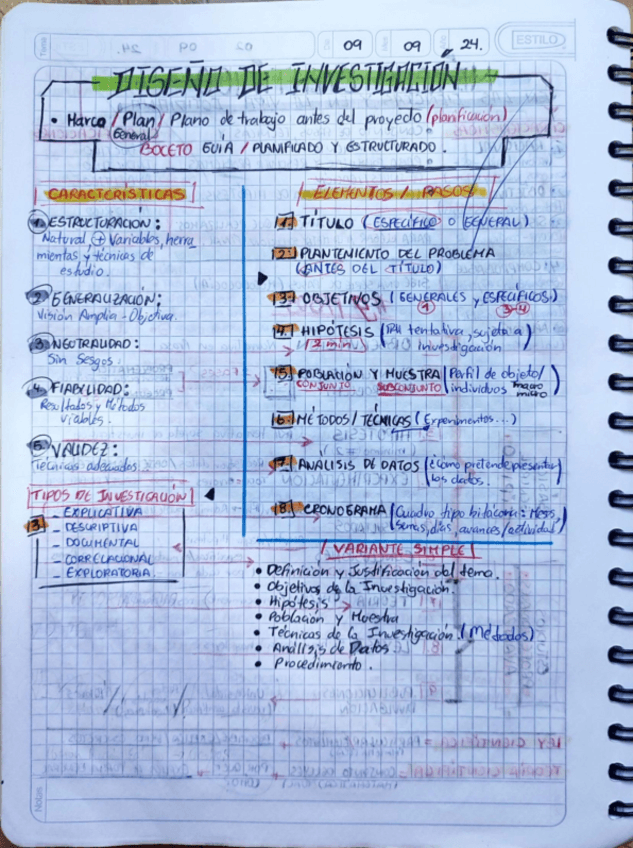 09 09 24.
ESTILO
DISEÑO DE INVESTIGACIÓN
• Marco / Plan / Plano de trabajo antes del proyecto (planificación)
General
BOCETO GUÍA / PLANIFICADO Y ESTRUCTURADO.
CARACTERÍSTICAS
1. ESTRUCTURACIÓN:
Natural + Variables, herra
mientas y técnicas de
estudio.
2. GENERALIZACIÓN:
Visión Amplia - Objetiva.
3. NEUTRALIDAD:
Sin Sesgos.
4. FIABILIDAD:
Resultados y Métodos
viables.
5. VALIDEZ:
Técnicas adecuadas.
TIPOS DE INVESTIGACIÓN
_ EXPLICATIVA
_ DESCRIPTIVA
_ DOCUMENTAL
_ CORRELACIONAL
_ EXPLORATORIA.
ELEMENTOS / PASOS
1. TÍTULO (ESPECÍFICO O GENERAL)
2. PLANTENIENTO DEL PROBLEMA
(ANTES DEL TÍTULO)
3. OBJETIVOS (GENERALES y ESPECÍFICOS)
1 3-4
4. HIPÓTESIS tentativa, sujeta a
2 min investigación
5. POBLACIÓN Y MUESTRA (Perfil de objeto/
CONJUNTO SUBCONJUNTO individuos macro
micro
6. MÉTODOS/ TÉCNICAS (Experimentos...)
7. ANÁLISIS DE DATOS (¿Cómo pretende presentar
los datos.
8. CRONOGRAMA (Cuadro tipo bitácora: Meses,
días, avances/actividad)
VARIANTE SIMPLE
• Definición y Justificación del tema.
• Objetivos de la Investigación.
• Hipótesis
• Población y Muestra
• Técnicas de la Investigación. (Métodos)
• Análisis de Datos.
• Procedimiento.
Notas